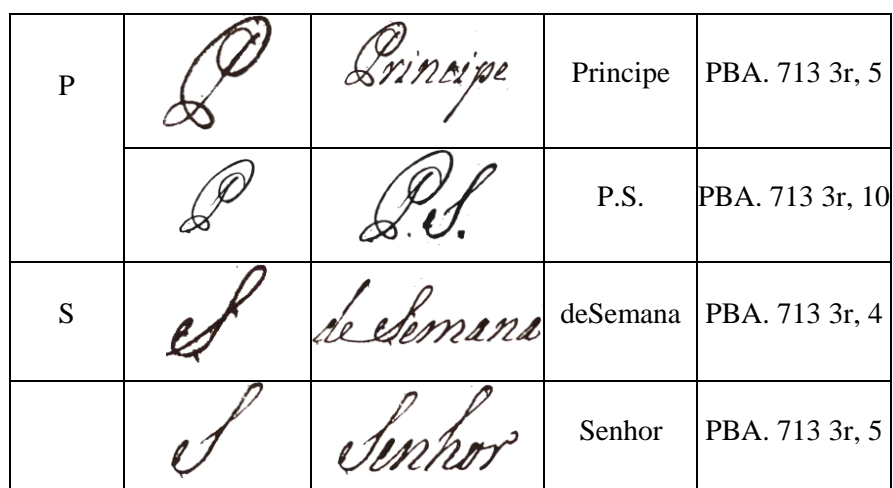 P P Principe Principe PBA. 713 3r, 5
P P.S. P.S. PBA. 713 3r, 10
S S de Semana deSemana PBA. 713 3r, 4
S Senhor Senhor PBA. 713 3r, 5